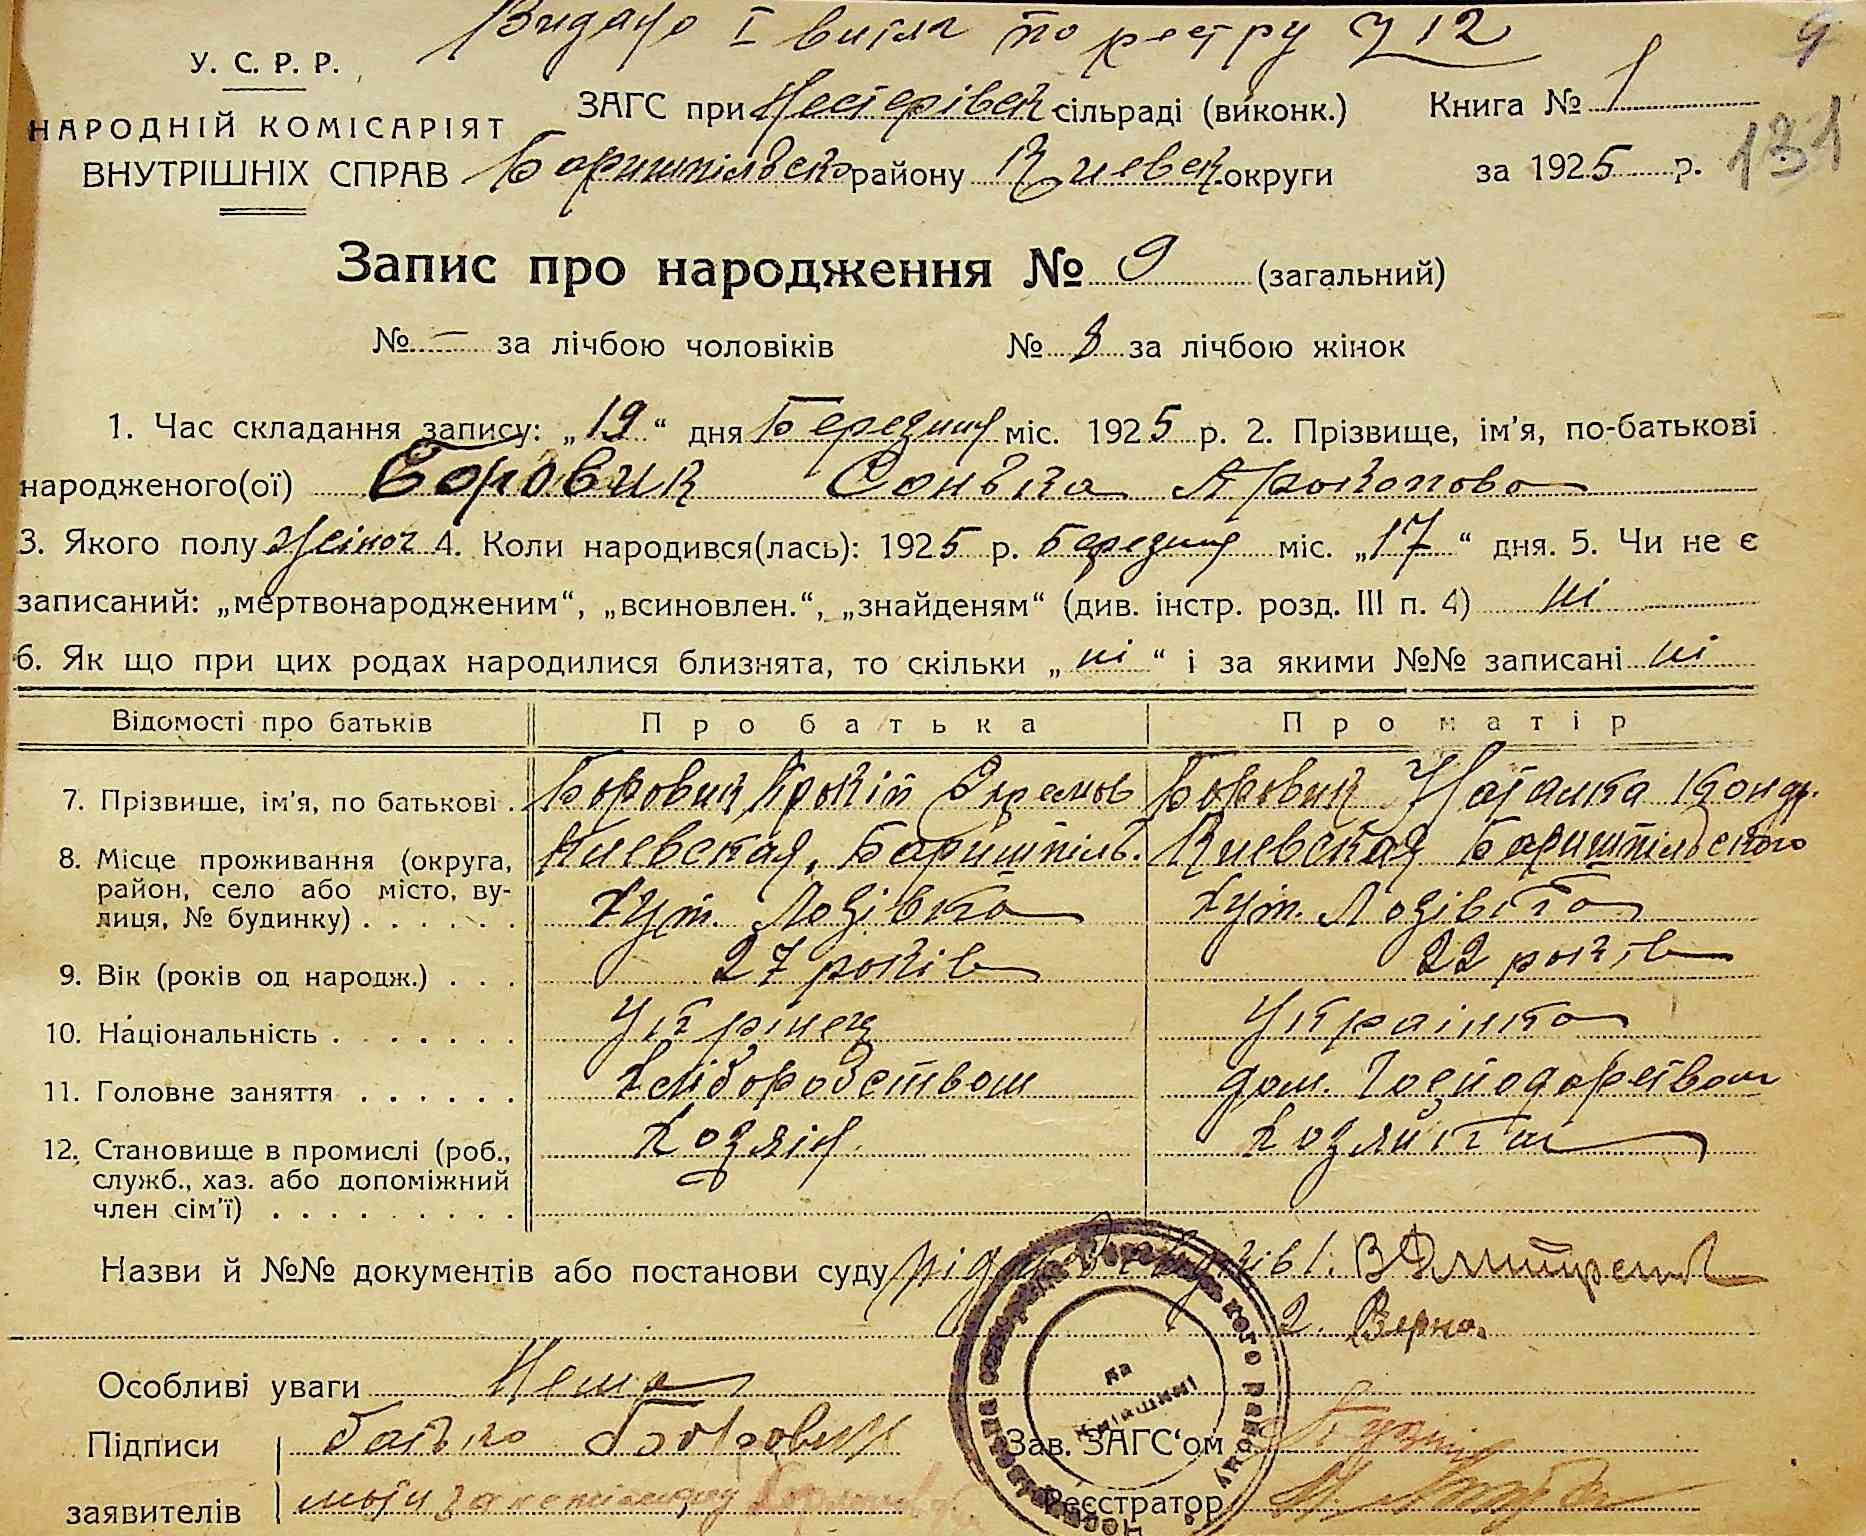 Видано I витяг по реєстру 12
9
У. С. Р. Р.
НАРОДНІЙ КОМІСАРІЯТ
ВНУТРІШНІХ СПРАВ
ЗАГС при Нестерівск сільраді (виконк.)
Книга № 1
Боришпільсько району Киевск. округи
за 1925 р.
131
Запис про народження № 9 (загальний)
№ – за лічбою чоловіків № 8 за лічбою жінок
1. Час складання запису: „19“ дня Березиля міс. 1925 р. 2. Прізвище, ім'я, по-батькові
народженого(ої) Боровик Сонька Прокопова
3. Якого полу жіноч 4. Коли народився(лась): 1925 р. Березиля міс. „17“ дня. 5. Чи не є
записаний: „мертвонародженим“, „всиновлен.“, „знайденям“ (див. інстр. розд. III п. 4) ні
6. Як що при цих родах народилися близнята, то скільки „ні“ і за якими №№ записані ні
Відомості про батьків Про батька Про матір
7. Прізвище, ім'я, по батькові . Боровик Прокіп Охрамов Боровик Наталка Кондр.
8. Місце проживання (округа, район, село або місто, вулиця, № будинку) . . . . . . Киевская, Боришпіль. Хут. Лозівка Киевская Боришпільского Хут. Лозівка
9. Вік (років од народж.) . . . 27 років 22 років
10. Національність . . . . . . . Укрінец Украінка
11. Головне заняття . . . . . . Хліборобством дом. Господарством
12. Становище в промислі (роб., служб., хаз. або допоміжний член сім'ї) . . . . . . . . . Хозяін Хозяйка
Назви й №№ документів або постанови суду 1. В Дмитренко
2. Верно.
Особливі уваги Нема
Підписи батько Боровик Зав. ЗАГС'ом
заявителів Реєстратор